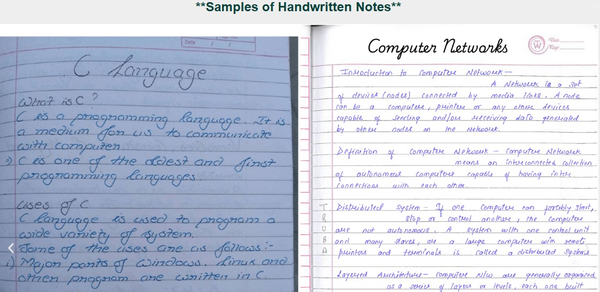 **Samples of Handwritten Notes**
Date
C Language
What is C?
C is a programming language. It is
a medium for us to communicate
with computer
C is one of the oldest and first
programming languages
Uses of C
C language is used to program a
wide variety of system.
Some of the uses are as follows :-
Major parts of Windows, Linux and
other program are written in C.
Computer Networks
Introduction to Computer Network —
A Network is a set
of devices (nodes) connected by media links. A node
can be a computer, printer or any other devices
capable of sending and/or receiving data generated
by other nodes on the network.
Definition of Computer Network - Computer Network
means an interconnected collection
of autonomous computers capable of having inter
connections with each other.
Distributed System - If one computer can forcibly start,
stop or control another, the computer
are not autonomous. A system with one control unit
and many slaves, or a large computer with remote
printers and terminals is called a distributed system
Layered Architecture - Computer N/w are generally organized
as a series of layers or levels, each one built